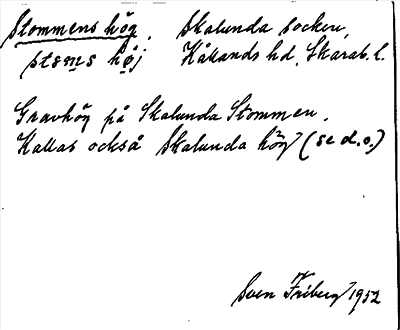 Stommens hög. Skalunda socken,
stems høj Kållands hd. Skarab. l.
Gravhög på Skalunda Stommen.
Kallas också Skalunda hög (se d.o.)
Sven Friberg 1952